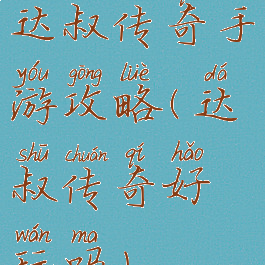 达叔传奇手
yóu gōng lüè dá
游攻略(达
shū chuán qí hǎo
叔传奇好
wán ma
玩吗)